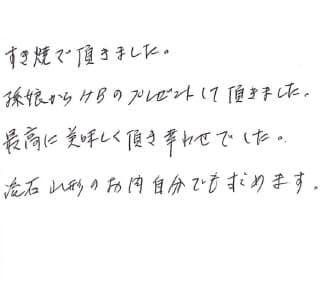 すき焼で頂きました。
孫娘からHBのプレゼントして頂きました。
最高に美味しく頂き幸わせでした。
流石山形のお肉自分でも求めます。